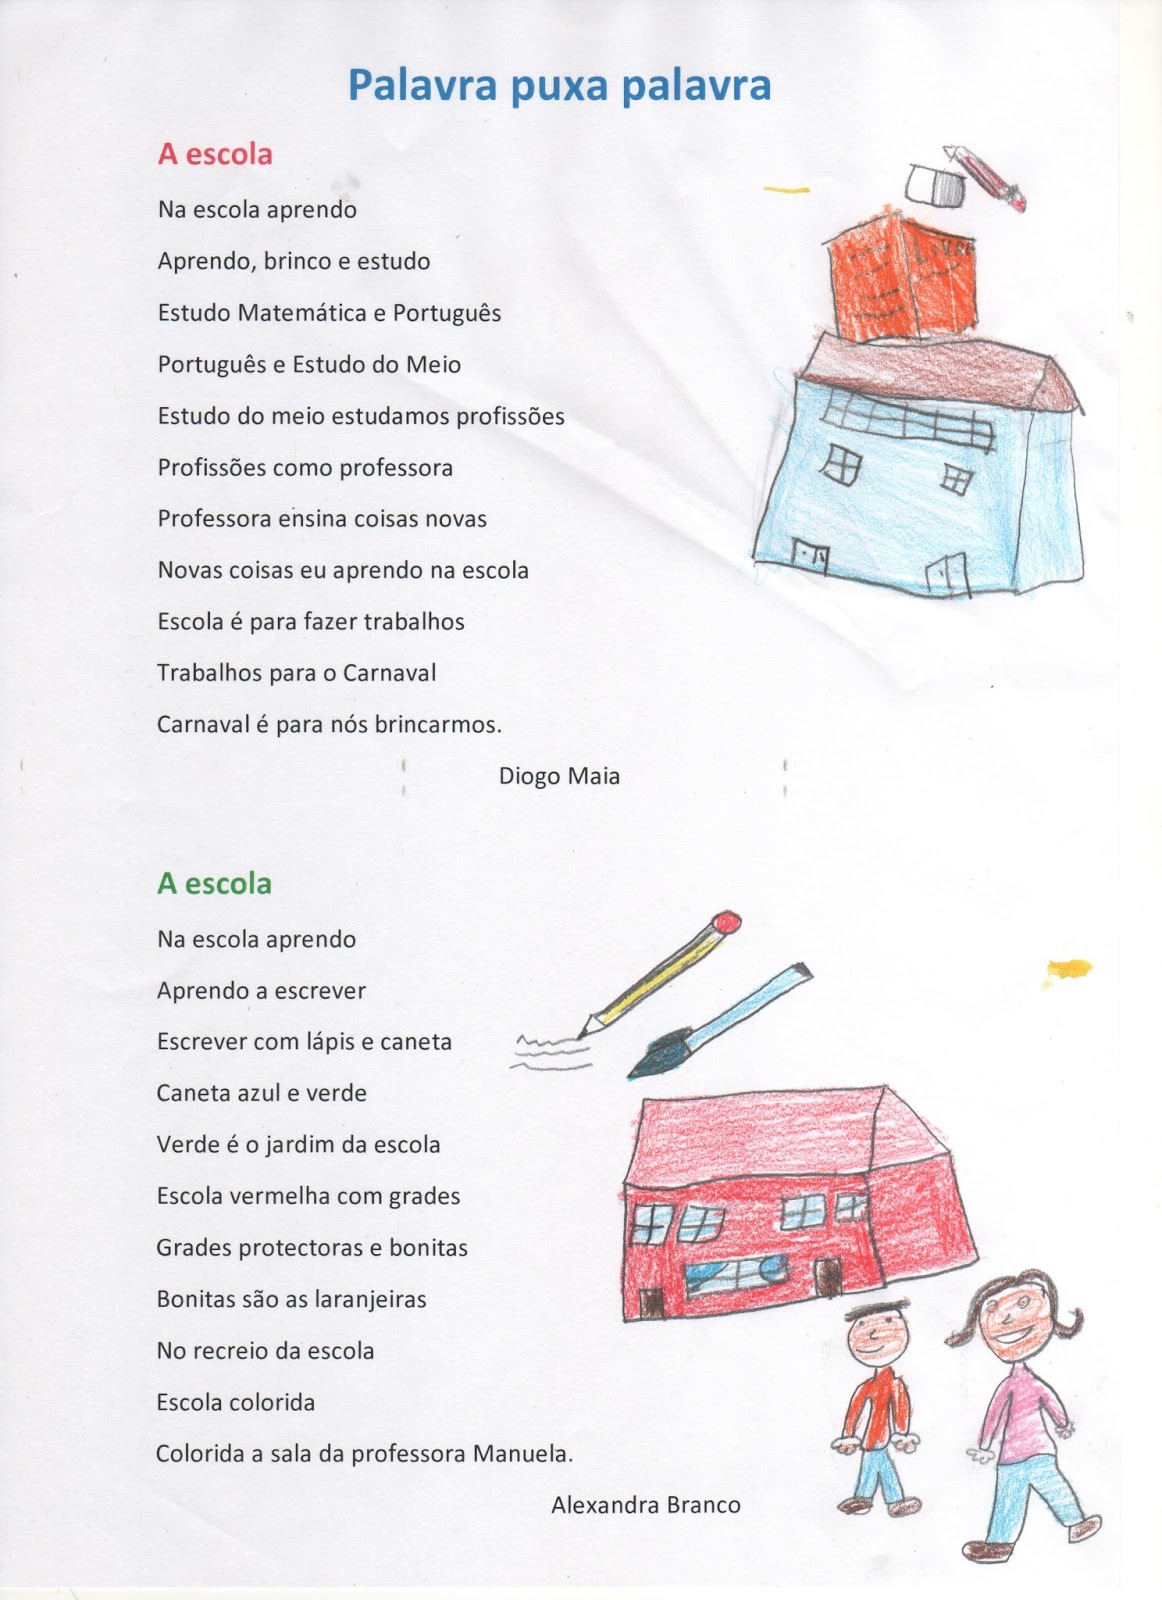 Palavra puxa palavra
A escola
Na escola aprendo
Aprendo, brinco e estudo
Estudo Matemática e Português
Português e Estudo do Meio
Estudo do meio estudamos profissões
Profissões como professora
Professora ensina coisas novas
Novas coisas eu aprendo na escola
Escola é para fazer trabalhos
Trabalhos para o Carnaval
Carnaval é para nós brincarmos.
Diogo Maia
A escola
Na escola aprendo
Aprendo a escrever
Escrever com lápis e caneta
Caneta azul e verde
Verde é o jardim da escola
Escola vermelha com grades
Grades protectoras e bonitas
Bonitas são as laranjeiras
No recreio da escola
Escola colorida
Colorida a sala da professora Manuela.
Alexandra Branco